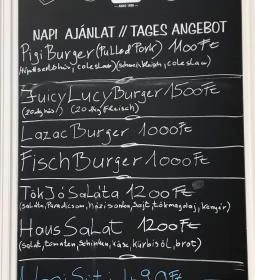 NAPI AJÁNLAT // TAGES ANGEBOT
PigiBurger (Pulled Pork) 1100 Ft
(tépett sertéshús, coleslaw) (schweinefleisch, coleslaw)
JuicyLucyBurger 1500Ft
(20dkg hús) (20 dkg Fleisch)
LazacBurger 1000Ft
FischBurger 1000Ft
TökJóSaláta 1200 Ft
(saláta, Paradicsom, házi sonka, sajt, tökmagolaj, kenyér)
HausSaLat 1200 Ft
(salat, tomaten, schinken, käse, kürbisöl, brot)